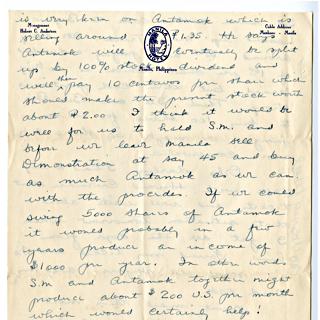 is very keen on Antamok which is
Management
Robert C. Anderson
MANILA
HOTEL
Cable Address
Manhote — Manila
selling around ₱1.35. He says
Antamok will eventually be split
up by 100% stock dividend and
Manila, Philippines
will then pay 10 centavos per share which
should make the present stock worth
about ₱2.00. I think it would be
well for us to hold S.M. and
before we leave Manila sell
Demonstration at say 45 and buy
as much Antamok as we can
with the procedes. If we could
swing 5000 shares of Antamok
it would probably in a few
years produce an income of
$1000 per year. In other words
S.M and Antamok together might
produce about $200 U.S. per month
which would certainly help!